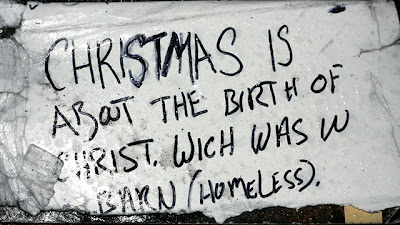 CHRISTMAS IS
ABOUT THE BIRTH OF
CHRIST. WICH WAS IN
BARN (HOMELESS).